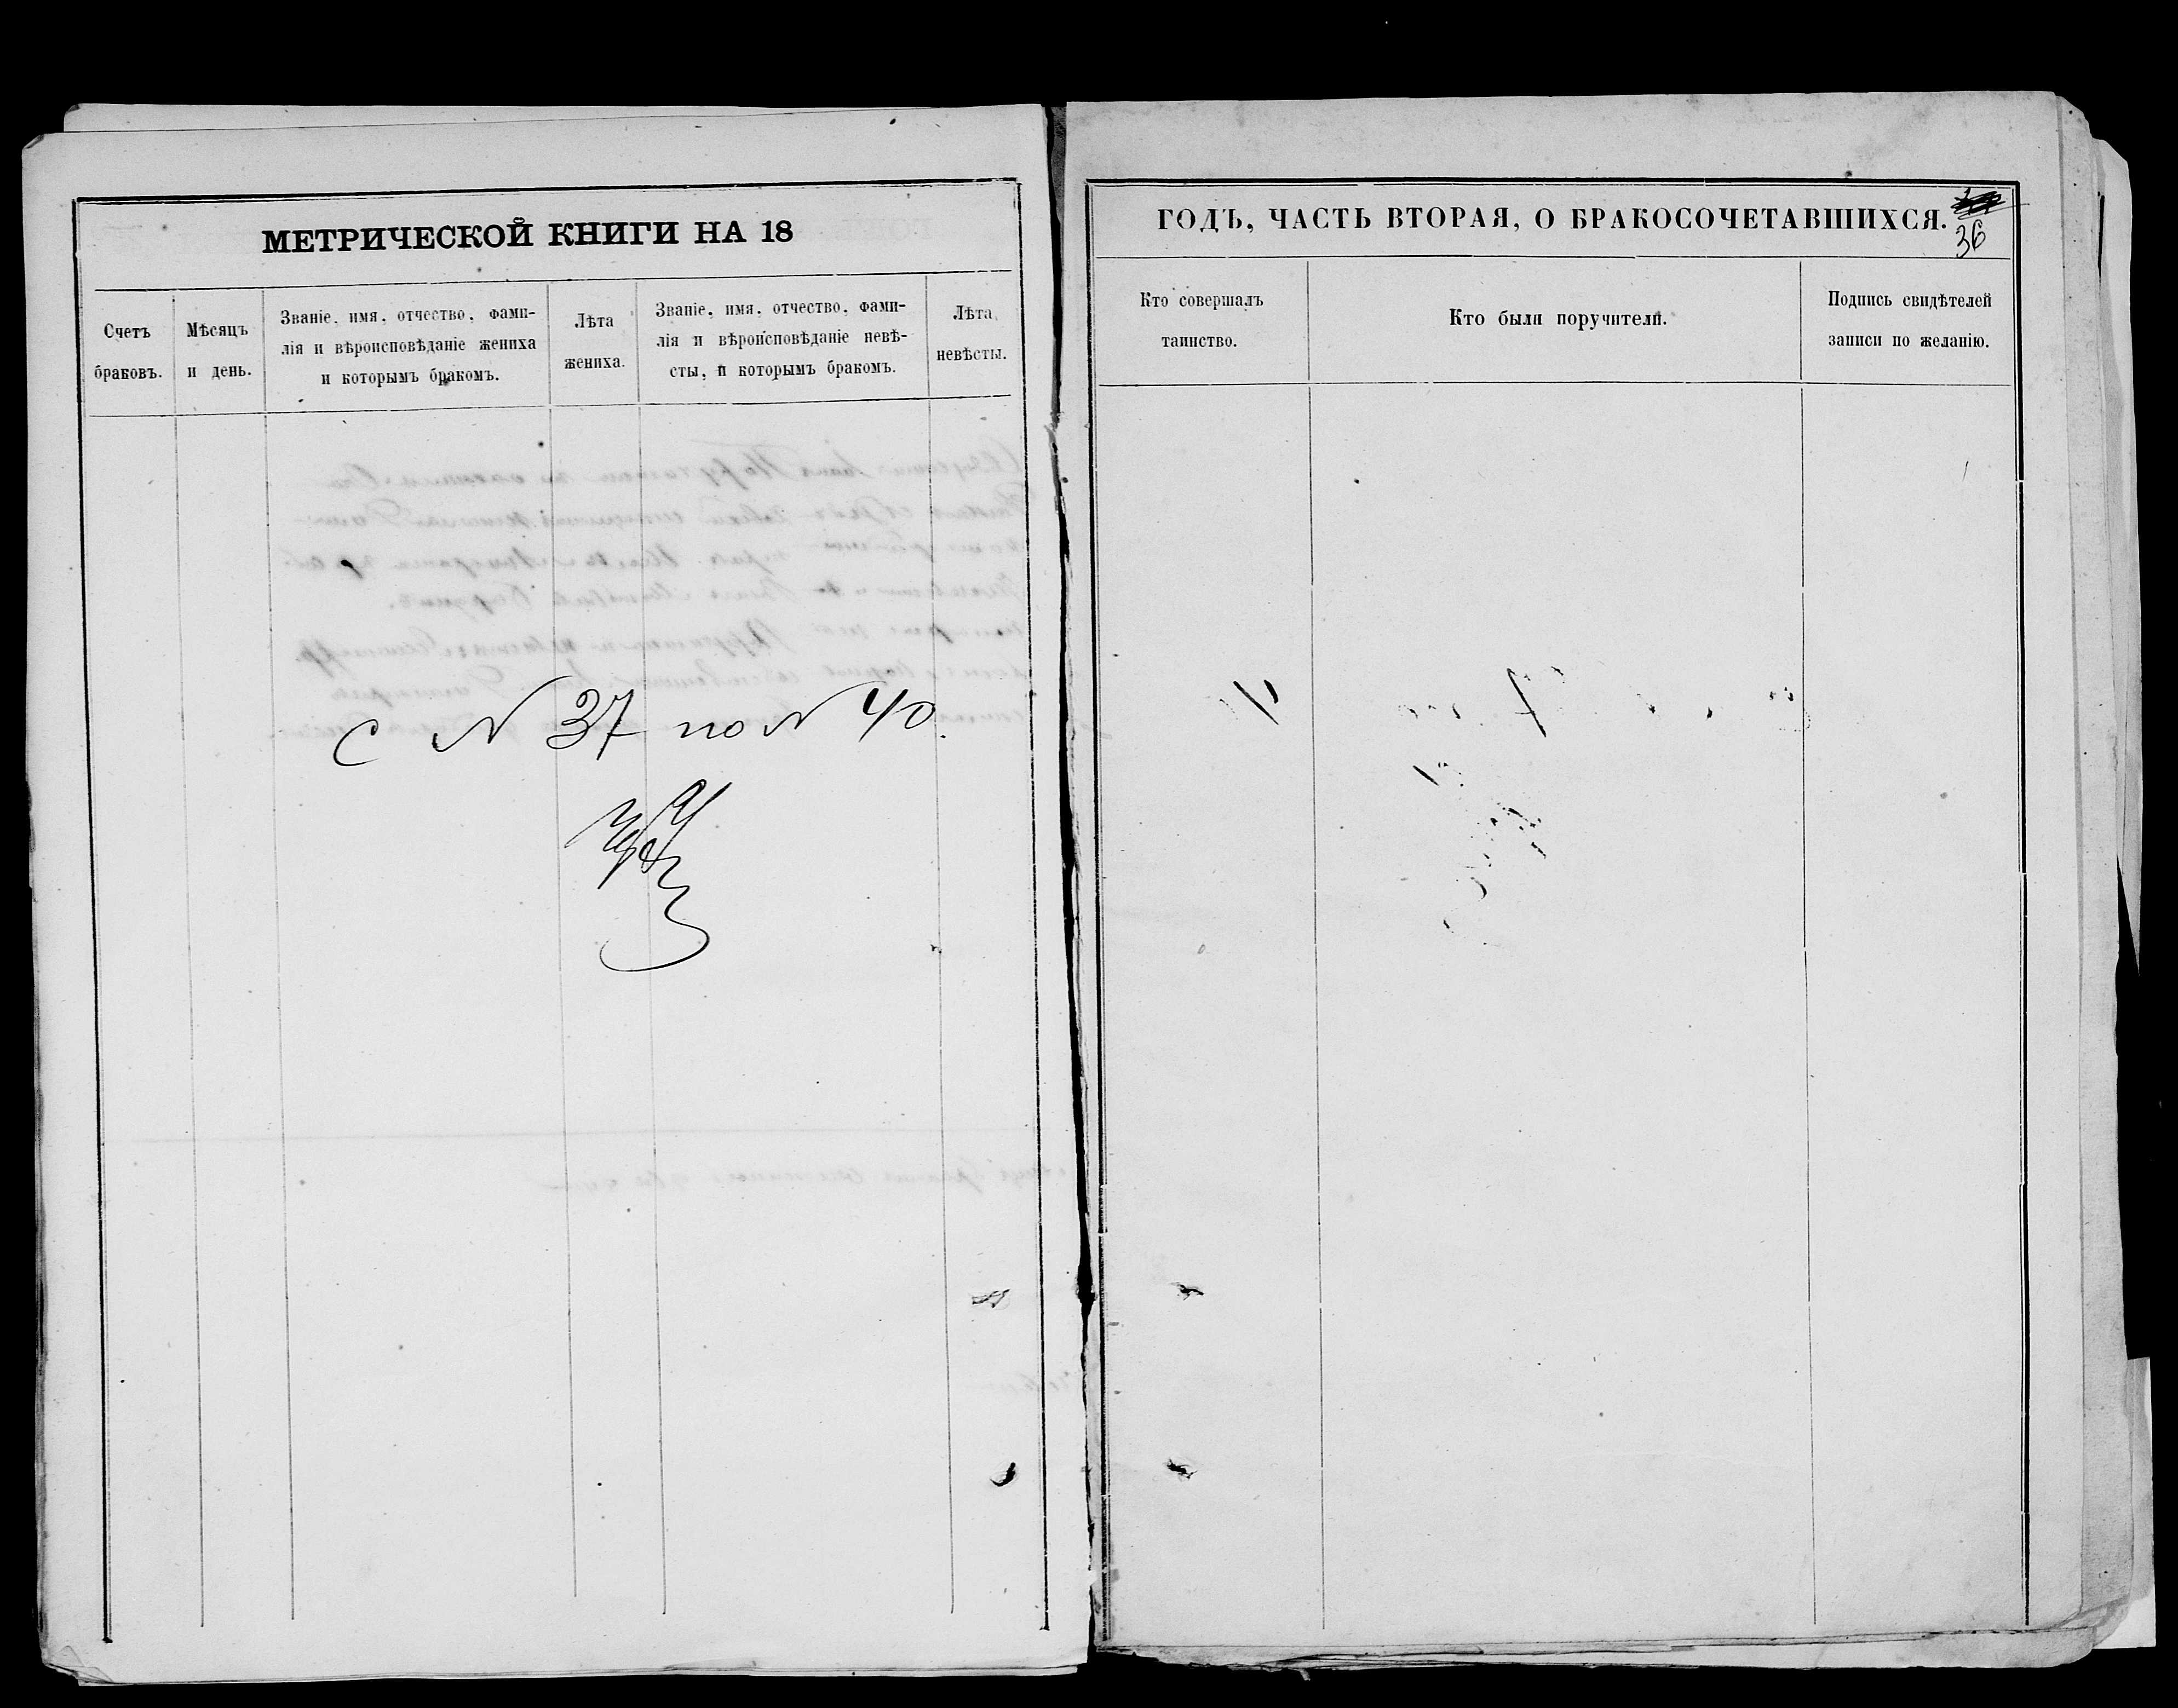 МЕТРИЧЕСКОЙ КНИГИ НА 18
Счетъ
браковъ.
Мѣсяцъ
и день.
Званіе, имя, отчество, фами-
лія и вѣроисповѣданіе жениха
и которымъ бракомъ.
Лѣта
жениха.
Званіе, имя, отчество, фами-
лія и вѣроисповѣданіе невѣ-
сты, и которымъ бракомъ.
Лѣта
невѣсты.
с N 37 по N 40.
ГОДЪ, ЧАСТЬ ВТОРАЯ, О БРАКОСОЧЕТАВШИХСЯ.
36
Кто совершалъ
таинство.
Кто были поручители.
Подпись свидѣтелей
записи по желанію.